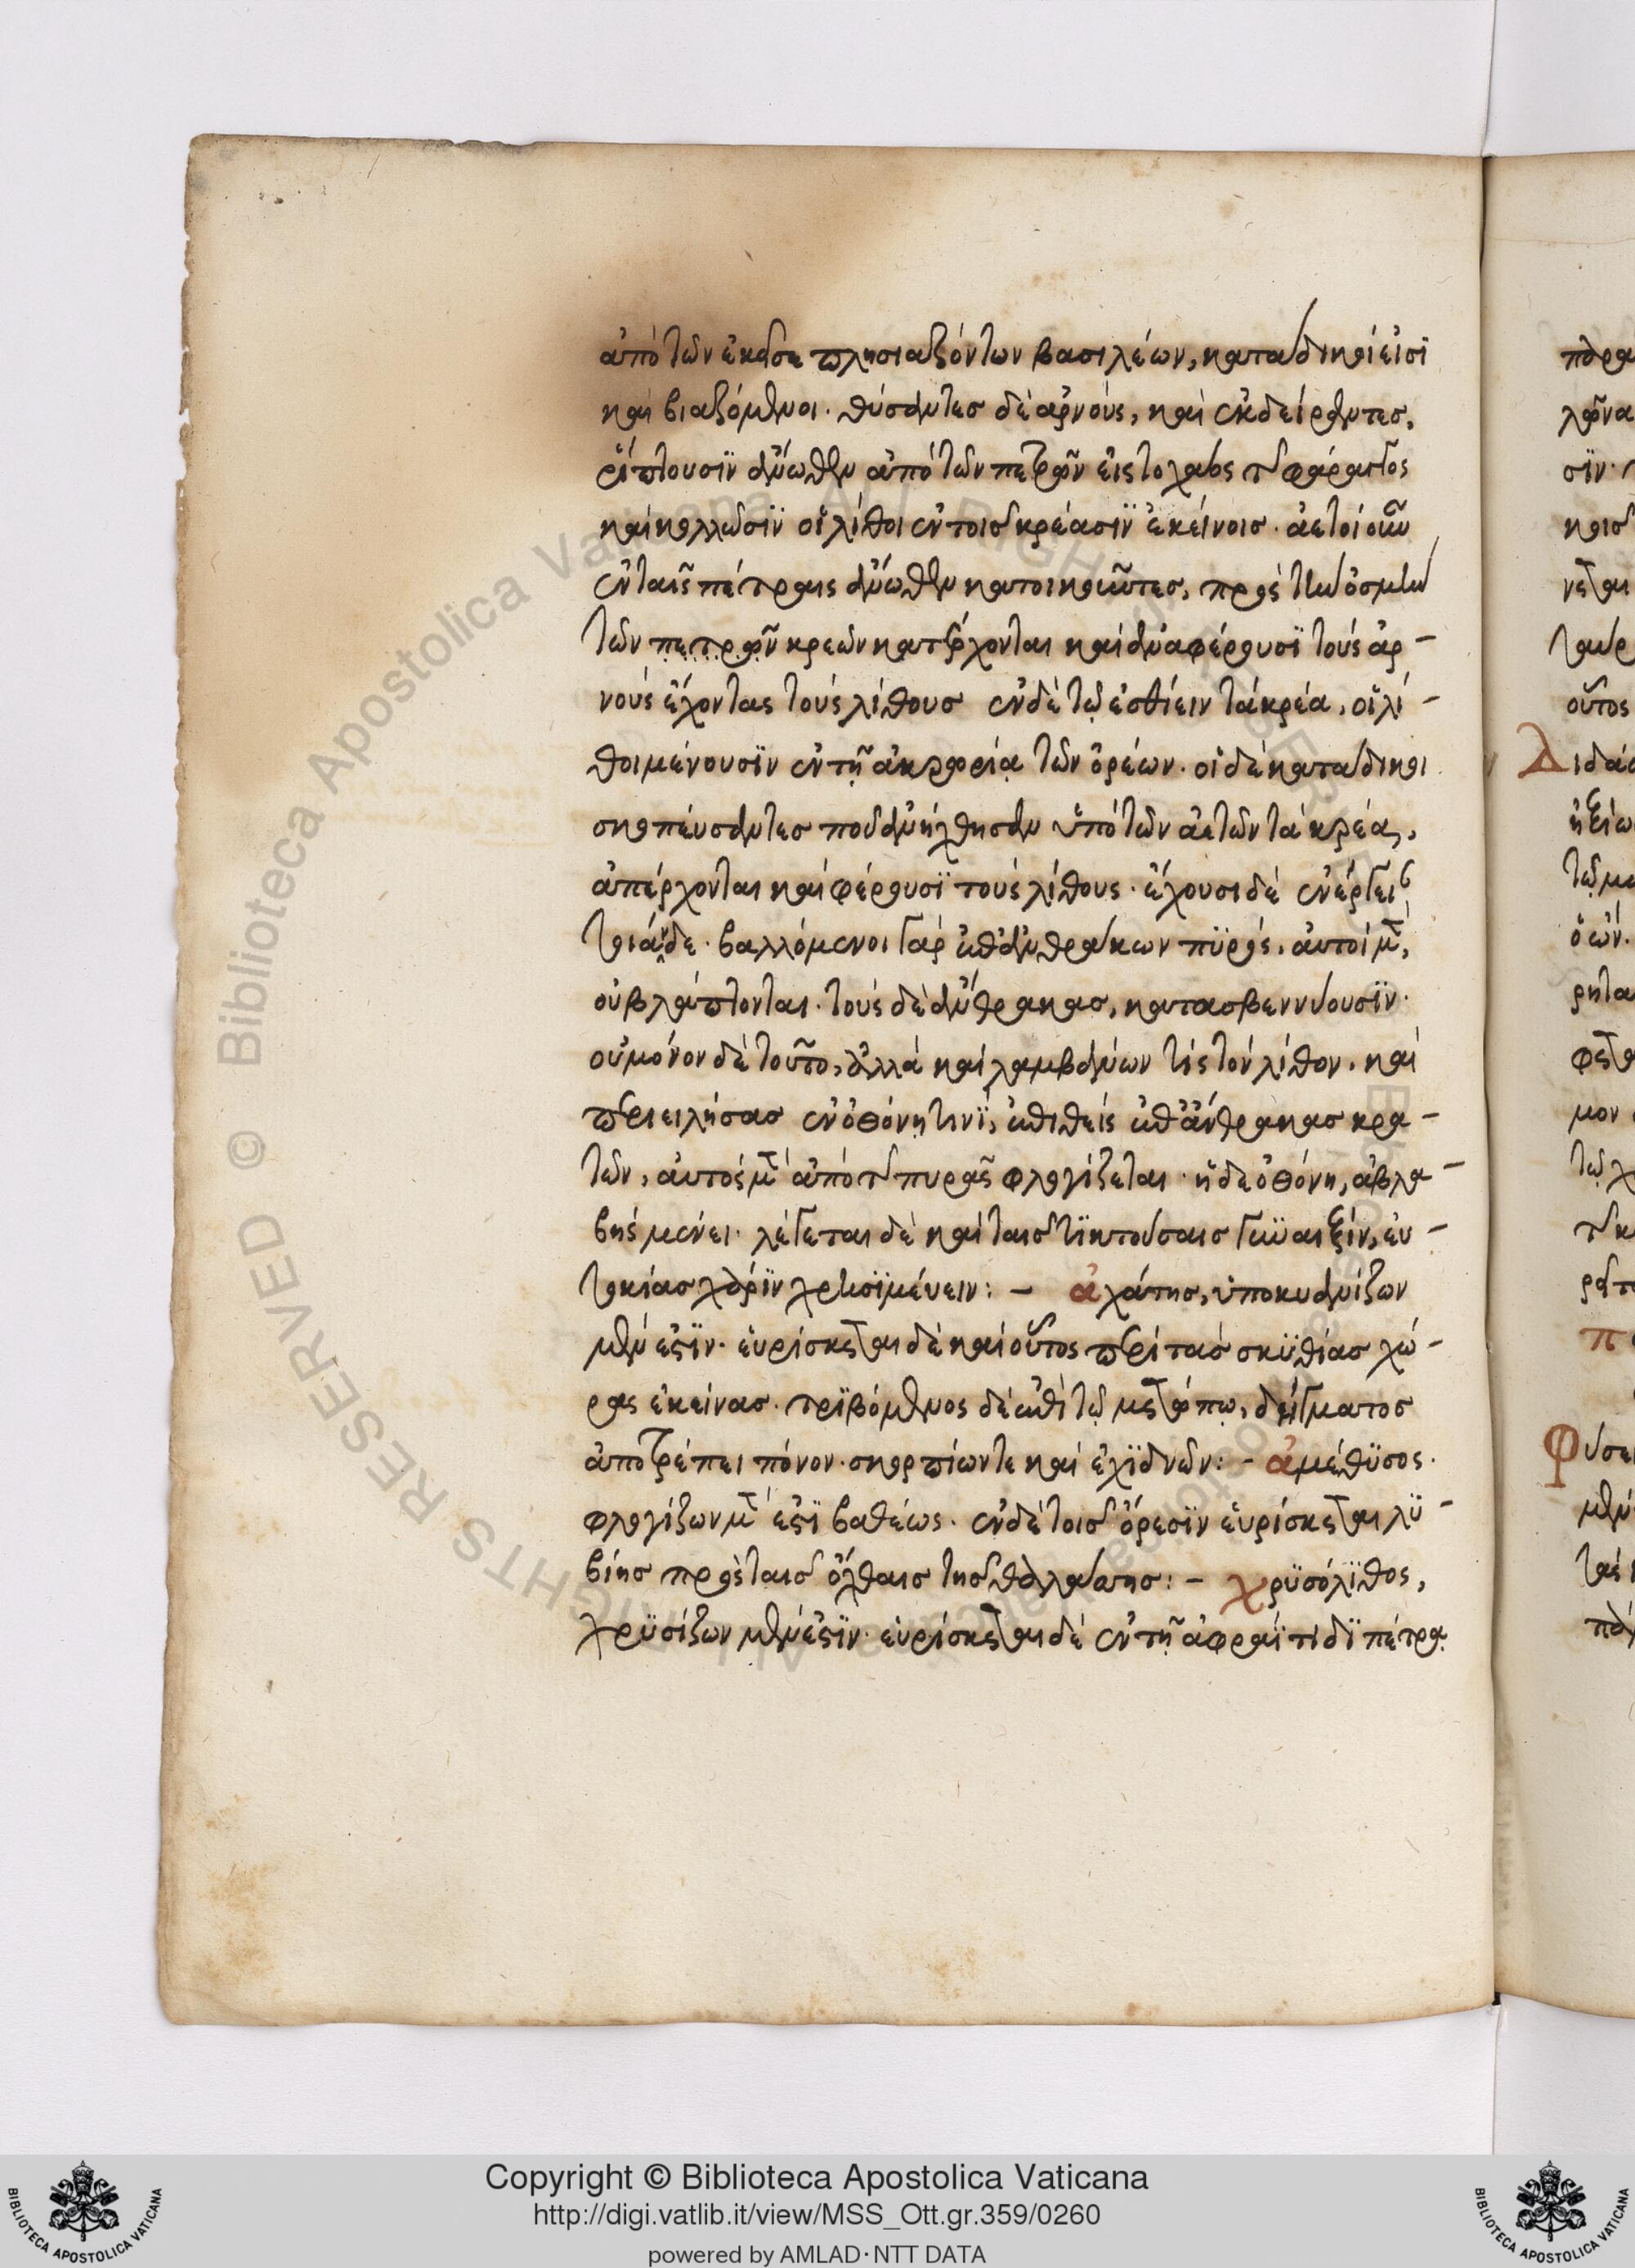 ἀπὸ τῶν ἐκεῖσε πλησιαζόντων βασιλέων, κατάδικοι εἰσϊ
καὶ βιαζόμενοι. θύσαντες δὲ ἀρνοὺς, καὶ ἐκδείραντες,
ῥίπτουσϊν ἄνωθεν ἀπὸ τῶν πετρῶν εἰς τὸ χάος τοῦ φάραγγος
καὶ κολλῶσϊν οἱ λίθοι ἐν τοῖς κρέασϊν ἐκείνοις. ἀετοὶ οὖν
ἐν ταῖς πέτραις ἄνωθεν κατοικοῦντες, πρὸς τὴν ὀσμὴν
τῶν πετρῶν κρεῶν κατέρχονται καὶ ἀναφέρουσϊ τοὺς ἀρ-
νοὺς ἔχοντας τοὺς λίθους ἐν δὲ τῷ ἐσθίειν τὰ κρέα, οἱ λί-
θοι μένουσϊν ἐν τῇ ἀκρωρίᾳ τῶν ὀρέων. οἱ δὲ κατάδικοι
σκοπεύσαντες ποῦ ἀνήχθησαν ὑπὸ τῶν ἀετῶν τὰ κρέα,
ἀπέρχονται καὶ φέρουσϊ τοὺς λίθους. ἔχουσι δὲ ἐνέργει
τοιάνδε. βαλλόμενοι γὰρ ἐπ' ἀνθράκων πϋρός, αὐτοὶ μὲν,
οὐ βλάπτονται. τοὺς δὲ ἄνθρακας, κατασβεννύουσϊν.
οὐ μόνον δὲ τοῦτο, ἀλλὰ καὶ λαμβάνων τίς τὸν λίθον, καὶ
περιειλήσας ἐν ὀθόνῃ τινϊ, ἐπιθεὶς ἐπ' ἄνθρακας κρα-
τῶν, αὐτὸς μὲν ἀπὸ τοῦ πυρὸς φλογίζεται. ἡ δὲ ὀθόνη, ἀβλα-
βὴς μένει. λέγεται δὲ καὶ ταῖς τϊκτούσαις γυναιξὶν, εὐ-
τοκίας χάρϊν χρησϊμεύειν: - ἀχάτης, ὑποκυανίζων
μὲν ἐστϊν. εὑρίσκεται δὲ καὶ οὗτος περὶ τὰς σκϋθίας χώ-
ρας ἐκείνας. τρϊβόμενος δὲ ἐπὶ τῷ μετώπῳ, δήγματος
ἀποτρέπει πόνον. σκορπίων τε καὶ ἐχϊδνῶν: - ἀμέθϋσος.
φλογίζων μὲν ἐστϊ βαθέως. ἐν δὲ τοῖς ὄρεσϊν εὑρίσκεται λϋ-
βίης πρὸς ταῖς ὄχθαις τῆς θαλάσσης: - χρϋσόλϊθος,
χρϋσίζων μὲν ἐστϊν. εὑρίσκεται δὲ ἐν τῇ ἀφραΐτιδϊ πέτρᾳ
Copyright © Biblioteca Apostolica Vaticana
http://digi.vatlib.it/view/MSS_Ott.gr.359/0260
powered by AMLAD·NTT DATA